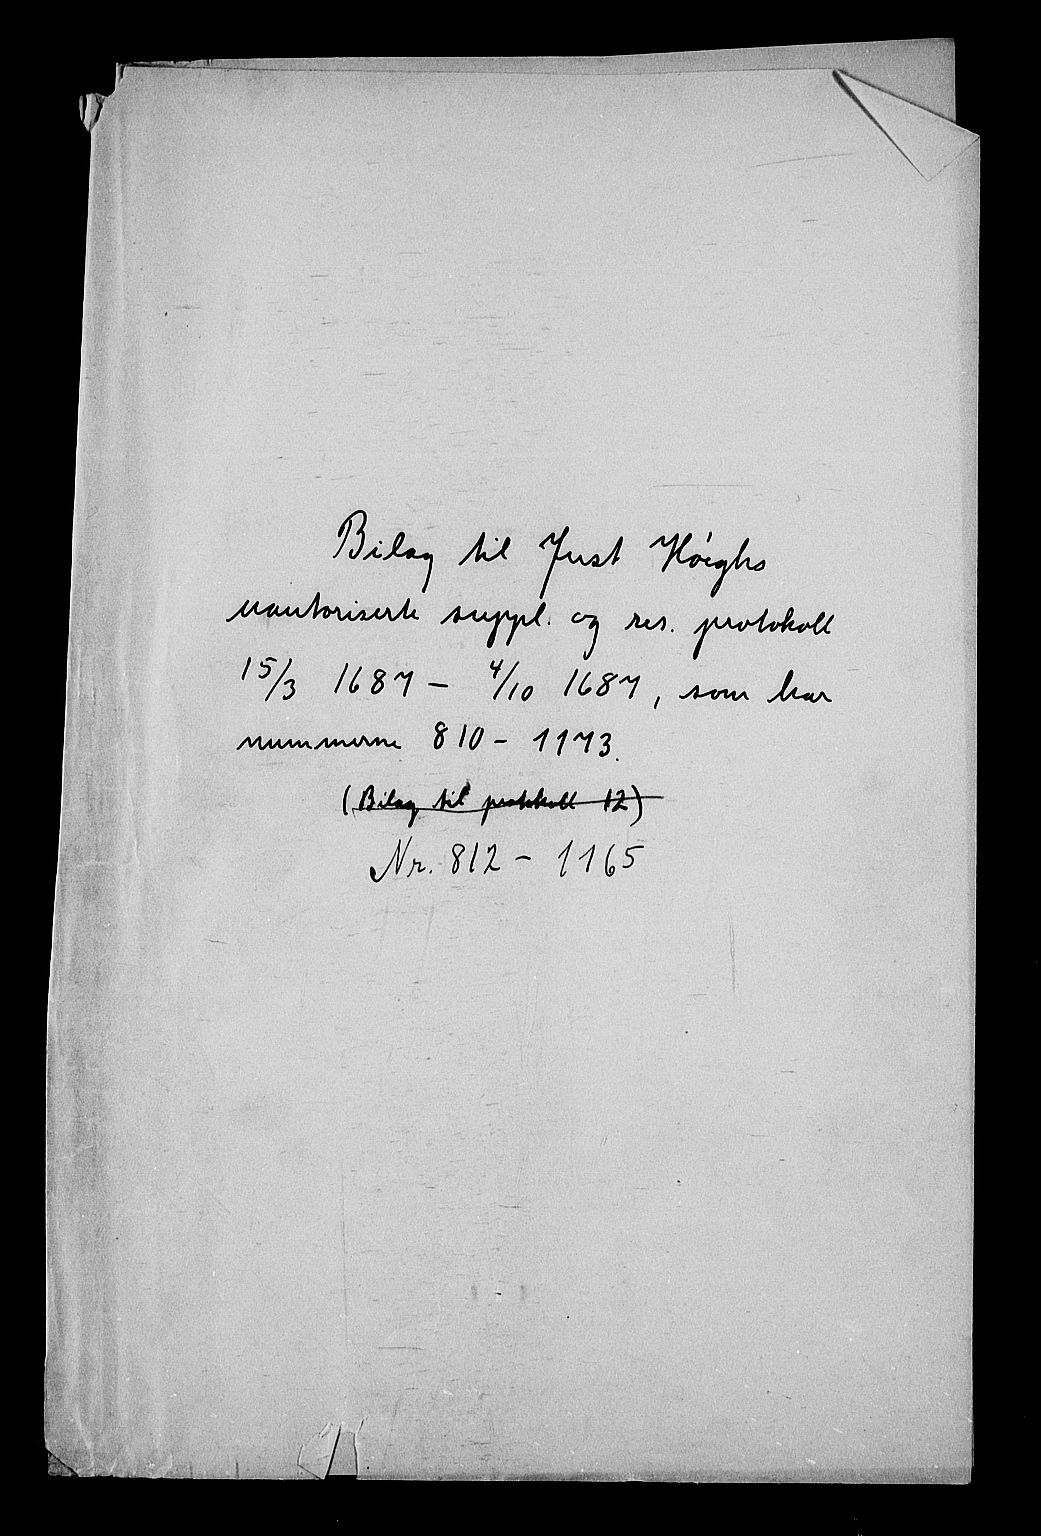 Bilag til Just Høeghs
uautoriserte suppl. og res. protokoll
15/3 1687 – 4/10 1687, som har
nummerne 810 – 1173.
(Bilag til protokoll 12)
Nr. 812 – 1165